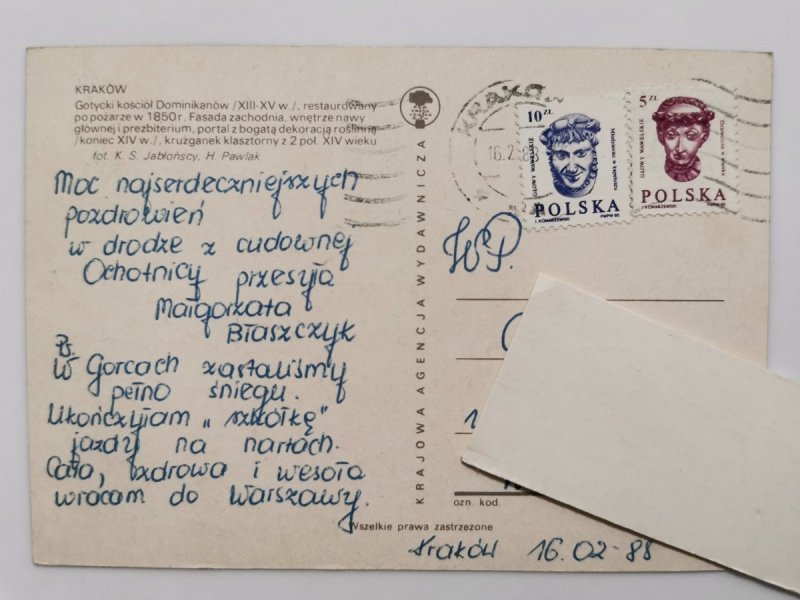 KRAKÓW
Gotycki kościół Dominikanów /XIII-XV w./, restaurowany
po pożarze w 1850 r. Fasada zachodnia, wnętrze nawy
głównej i prezbiterium, portal z bogatą dekoracją roślinną
/koniec XIV w./, krużganek klasztorny z 2 poł. XIV wieku
fot. K. S. Jabłońscy, H. Pawlak
Moc najserdeczniejszych
pozdrowień
w drodze z cudownej
Ochotnicy przesyła
Małgorzata
Błaszczyk
Ps.
W Gorcach zastaliśmy
pełno śniegu.
Ukończyłam „szkółkę"
jazdy na nartach.
Cała, zdrowa i wesoła
wracam do Warszawy.
KRAJOWA AGENCJA WYDAWNICZA
Wszelkie prawa zastrzeżone
KRAKÓW
16.2.88
10 ZŁ
GŁOWY WAWELSKIE
POLSKA
J. KONARZEWSKI
PWPW 85
5 ZŁ
GŁOWY WAWELSKIE
POLSKA
J. KONARZEWSKI
PWPW 85
WP.
ozn. kod.
Kraków 16.02-88